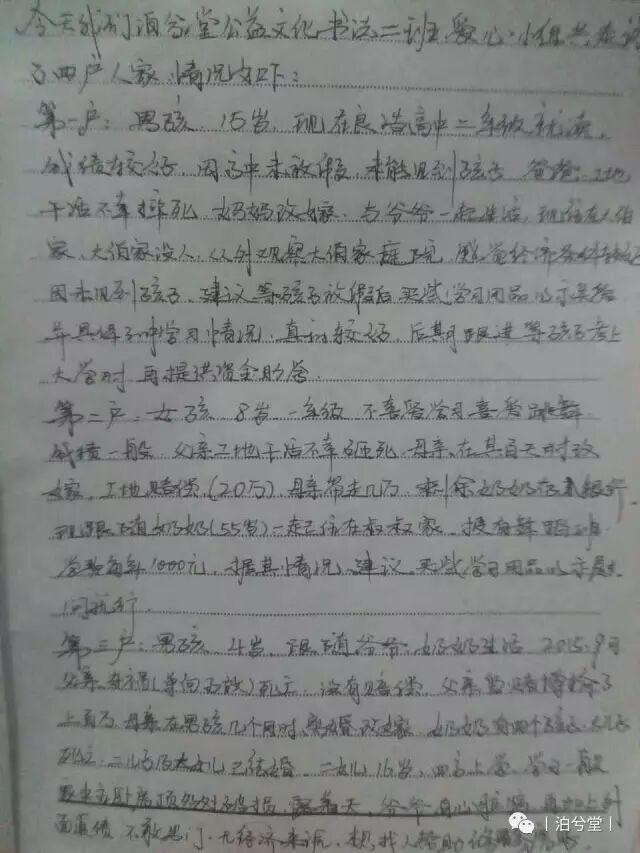 今天我们泊兮堂公益文化书法二班爱心小组共走访
了四户人家,情况如下:
第一户:男孩 15岁,现在良浩高中二年级就读,
成绩较好,因高中未放假,未能见到孩子 爸爸工地
干活不幸摔死 妈妈改嫁,与爷爷一起生活,现住在大伯
家,大伯家没人,从外观察大伯家庭院,感觉经济条件
因未见到孩子,建议等孩子放假后买些学习用品以示关怀
并具体了解学习情况,真初较好,后期跟进等孩子考上
大学时再提供资金助学.
第二户:女孩 8岁 一年级 不喜爱学习喜爱跳舞
成绩一般 父亲工地干活不幸砸死 母亲在其百天时改
嫁,工地赔偿(20万)母亲带走几万 剩余奶奶存银行
现跟随奶奶(55岁)一起住在叔叔家 报有舞蹈班
学费每年1000元,据其情况,建议买些学习用品以示慰
问就行.
第三户:男孩 4岁,跟随爷爷,奶奶生活 2015.9月
父亲车祸(导向)死亡 没有赔偿,父亲赌博输了
上百万 母亲在男孩几个月时,离婚改嫁 奶奶有四个孩子,大儿子
死亡,二儿及大女儿已结婚 二女儿16岁,四高上学,学习一般
爷爷有心脏病,再加上
面追债 不敢出门,无经济来源,想找人帮助
|泊兮堂|